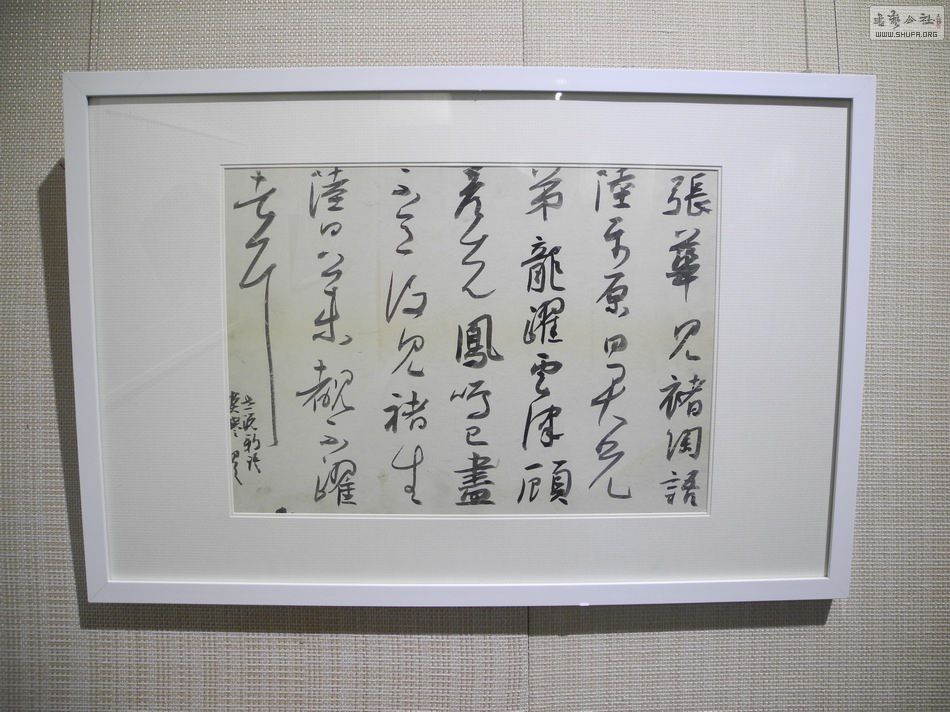 張華見褚陶語
陸平原曰君兄
弟龍躍雲津顧
彥先鳳鳴已盡
不意復見褚生
陸曰公未覩不躍
者耳
世說新語
書藝公社
WWW.SHUFA.ORG